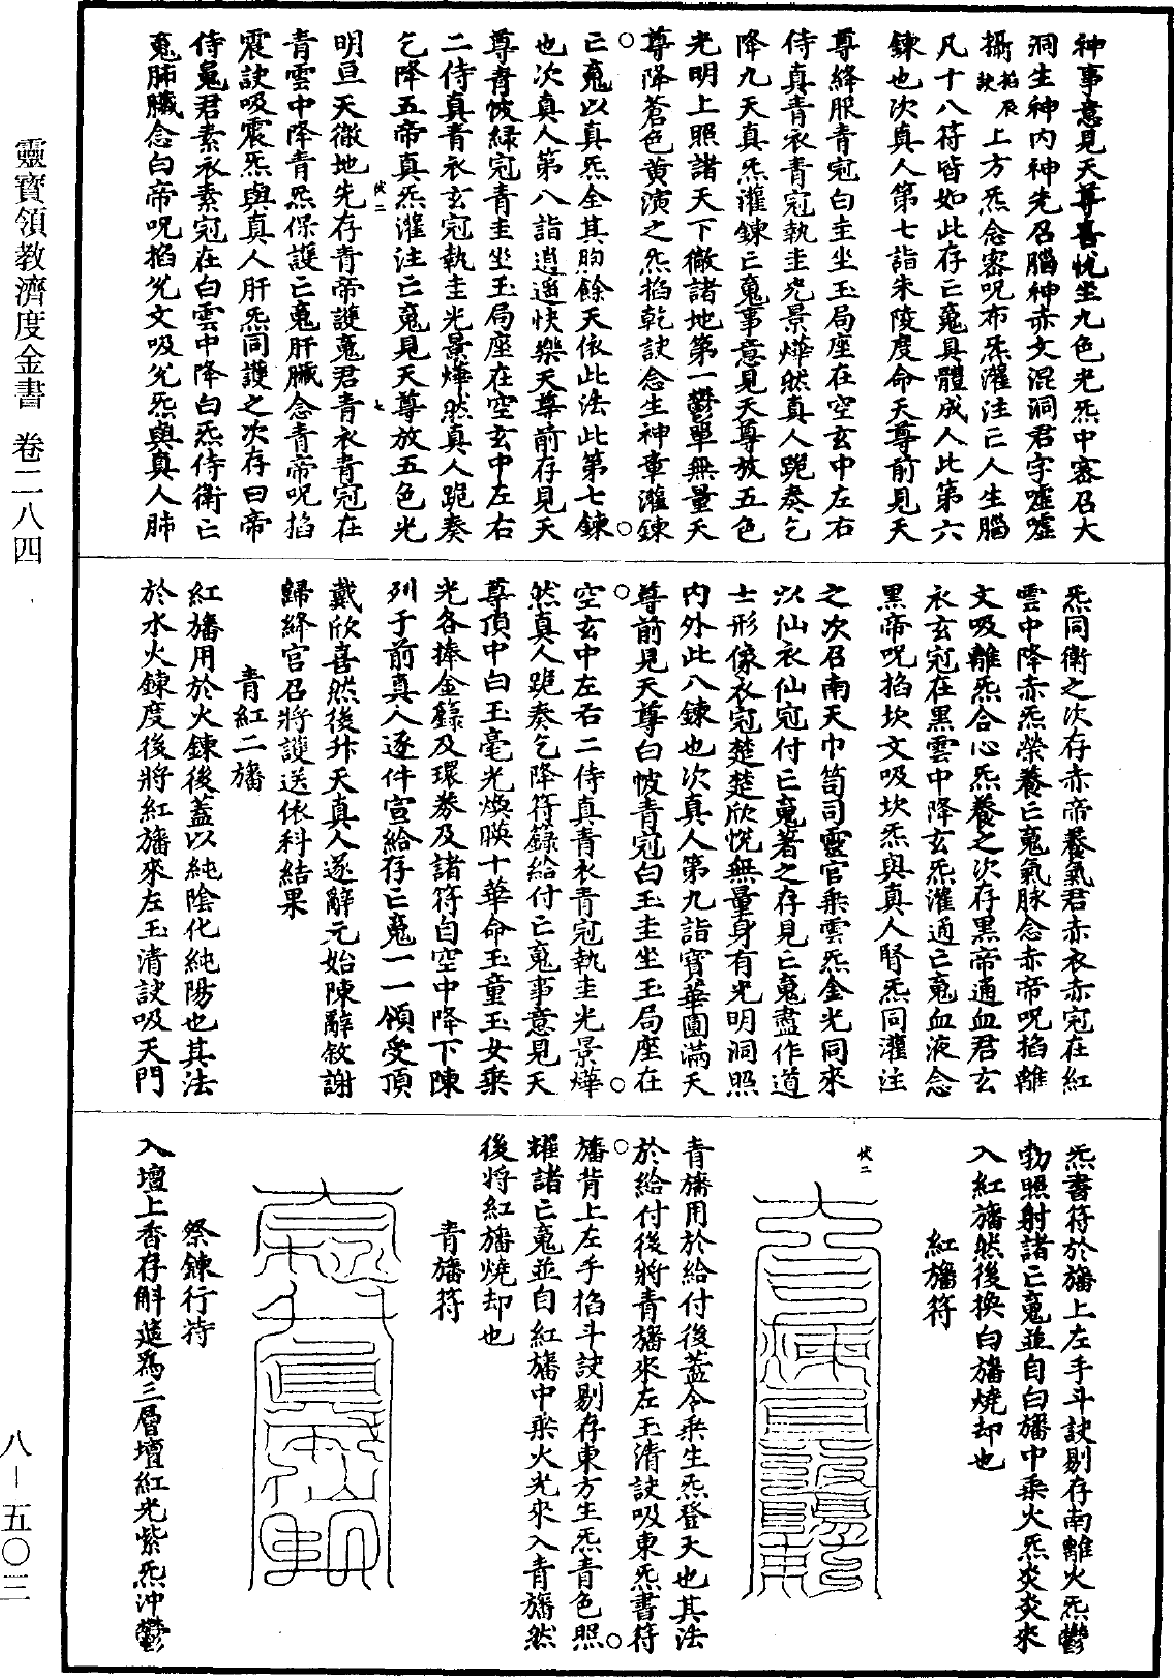 靈寶領教濟度金書 卷二八四
八－五〇三
神事意見天尊喜悅坐九色光炁中密召大
洞生神內神先召腦神赤文混洞君字噓噓
攝掐辰訣上方炁念密呪布炁灌注亡人生腦
凡十八符皆如此存亡魂具體成人此第六
鍊也次真人第七詣朱陵度命天尊前見天
尊絳服青冠白圭坐玉局座在空玄中左右
侍真青衣青冠執圭光景燁然真人跪奏乞
降九天真炁灌鍊亡魂事意見天尊放五色
光明上照諸天下徹諸地第一鬱單無量天
尊降蒼色黄演之炁掐乾訣念生神章灌鍊
亡魂以真炁全其胞餘天依此法此第七鍊
也次真人第八詣逍遙快樂天尊前存見天
尊青帔綠冠青圭坐玉局座在空玄中左右
二侍真青衣玄冠執圭光景燁然真人跪奏
乞降五帝真炁灌注亡魂見天尊放五色光
明亘天徹地先存青帝護魂君青衣青冠在
青雲中降青炁保護亡魂肝臟念青帝呪掐
震訣吸震炁與真人肝炁同護之次存白帝
侍魄君素衣素冠在白雲中降白炁侍衛亡
魂肺臟念白帝呪掐兌文吸兌炁與真人肺
炁同衛之次存赤帝養氣君赤衣赤冠在紅
雲中降赤炁榮養亡魂氣脉念赤帝呪掐離
文吸離炁合心炁養之次存黑帝通血君玄
衣玄冠在黑雲中降玄炁灌通亡魂血液念
黑帝呪掐坎文吸坎炁與真人腎炁同灌注
之次召南天巾笥司靈官乘雲炁金光同來
以仙衣仙冠付亡魂著之存見亡魂盡作道
士形像衣冠楚楚欣悅無量身有光明洞照
內外此八鍊也次真人第九詣寶華圓滿天
尊前見天尊白帔青冠白玉圭坐玉局座在
空玄中左右二侍真青衣青冠執圭光景燁
然真人跪奏乞降符籙給付亡魂事意見天
尊頂中白玉毫光煥映十華命玉童玉女乘
光各捧金籙及環券及諸符自空中降下陳
列于前真人逐件宣給存亡魂一一領受頂
戴欣喜然後升天真人遂辭元始陳辭敘謝
歸絳宮召將護送依科結果
青紅二旛
紅旛用於火鍊後蓋以純陰化純陽也其法
於水火鍊度後將紅旛來左玉清訣吸天門
炁書符於旛上左手斗訣剔存南離火炁鬱
勃照射諸亡魂並自白旛中乘火炁炎炎來
入紅旛然後換白旛燒却也
紅旛符
青旛用於給付後蓋令乘生炁登天也其法
於給付後將青旛來左玉清訣吸東炁書符
旛背上左手掐斗訣剔存東方生炁青色照
耀諸亡魂並自紅旛中乘火光來入青旛然
後將紅旛燒却也
青旛符
祭鍊行持
入壇上香存斛筵為三層壇紅光紫炁沖鬱